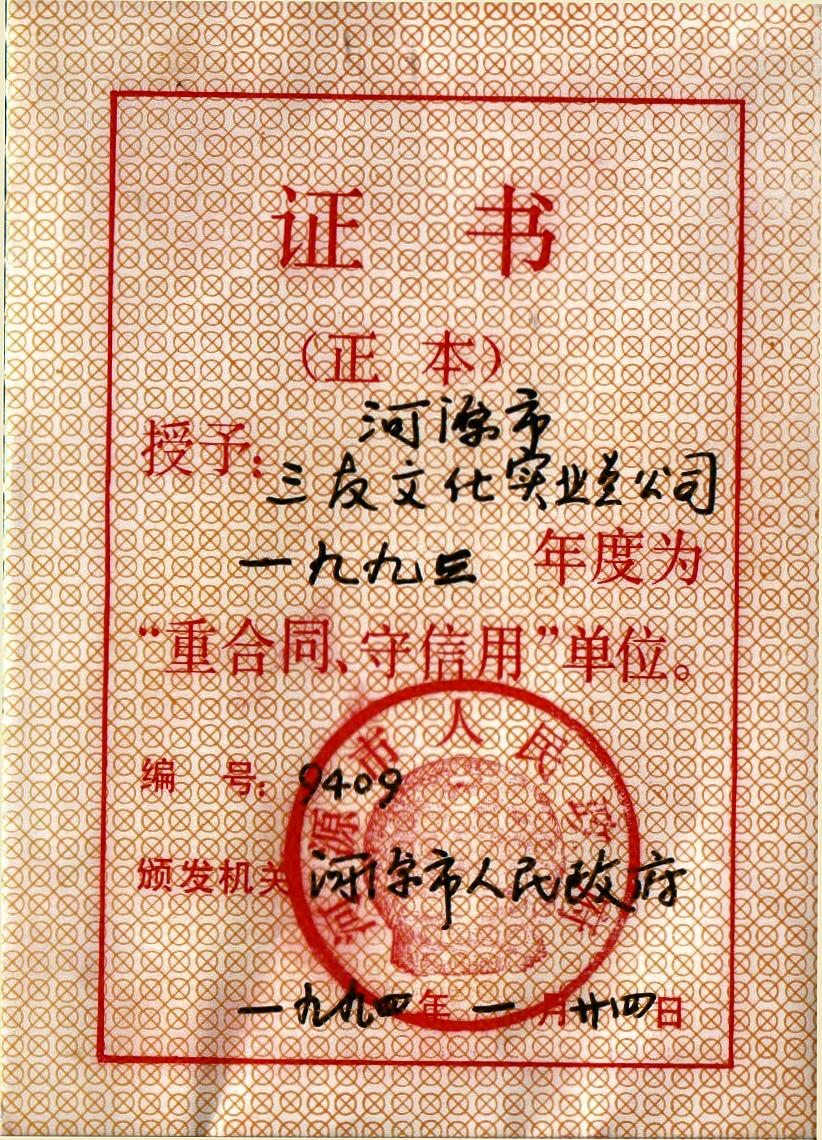 证 书
（正 本）
河源市
授予：三友文化实业总公司
一九九三 年度为
“重合同、守信用”单位。
编 号：9409
颁发机关 河源市人民政府
一九九四年一月廿四日
河源市人民政府